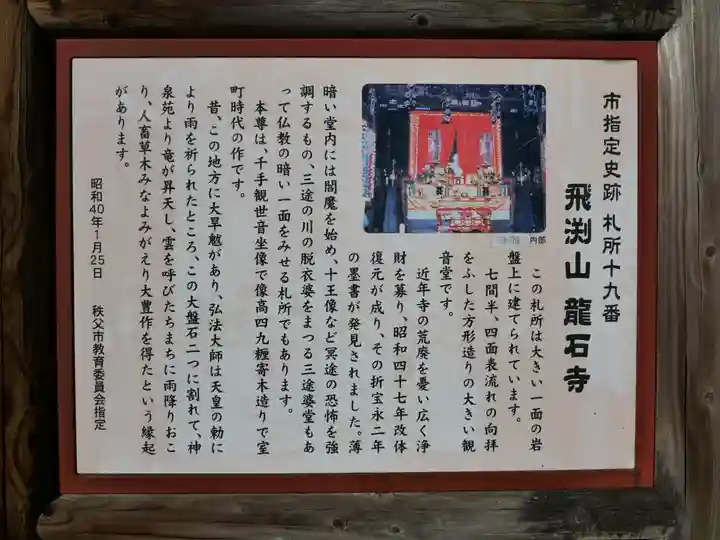 市指定史跡 札所十九番
飛渕山 龍石寺
この札所は大きい一面の岩
盤上に建てられています。
七間半、四面表流れの向拝
をふした方形造りの大きい観
音堂です。
近年寺の荒廃を憂い広く浄
財を募り、昭和四十七年改体
復元が成り、その折宝永二年
の墨書が発見されました。薄
暗い堂内には閻魔を始め、十王像など冥途の恐怖を強
調するもの、三途の川の脱衣婆をまつる三途婆堂もあ
って仏教の暗い一面をみせる札所でもあります。
本尊は、千手観世音坐像で像高四九糎寄木造りで室
町時代の作です。
昔、この地方に大旱魃があり、弘法大師は天皇の勅に
より雨を祈られたところ、この大盤石二つに割れて、神
泉苑より竜が昇天し、雲を呼びたちまちに雨降りおこ
り、人畜草木みなよみがえり大豊作を得たという縁起
があります。
昭和40年1月25日 秩父市教育委員会指定
内部